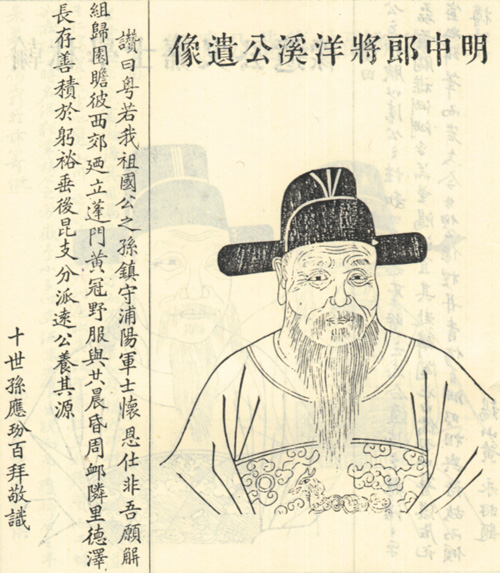 明中郎將洋溪公遺像
讚曰粤若我祖國公之孫鎮守浦陽軍士懷恩仕非吾願解
組歸園瞻彼西郊迺立蓬門黃冠野服與共晨昏周卹隣里德澤
長存善積於躬裕垂後昆支分派遠公養其源
十世孫應玢百拜敬識